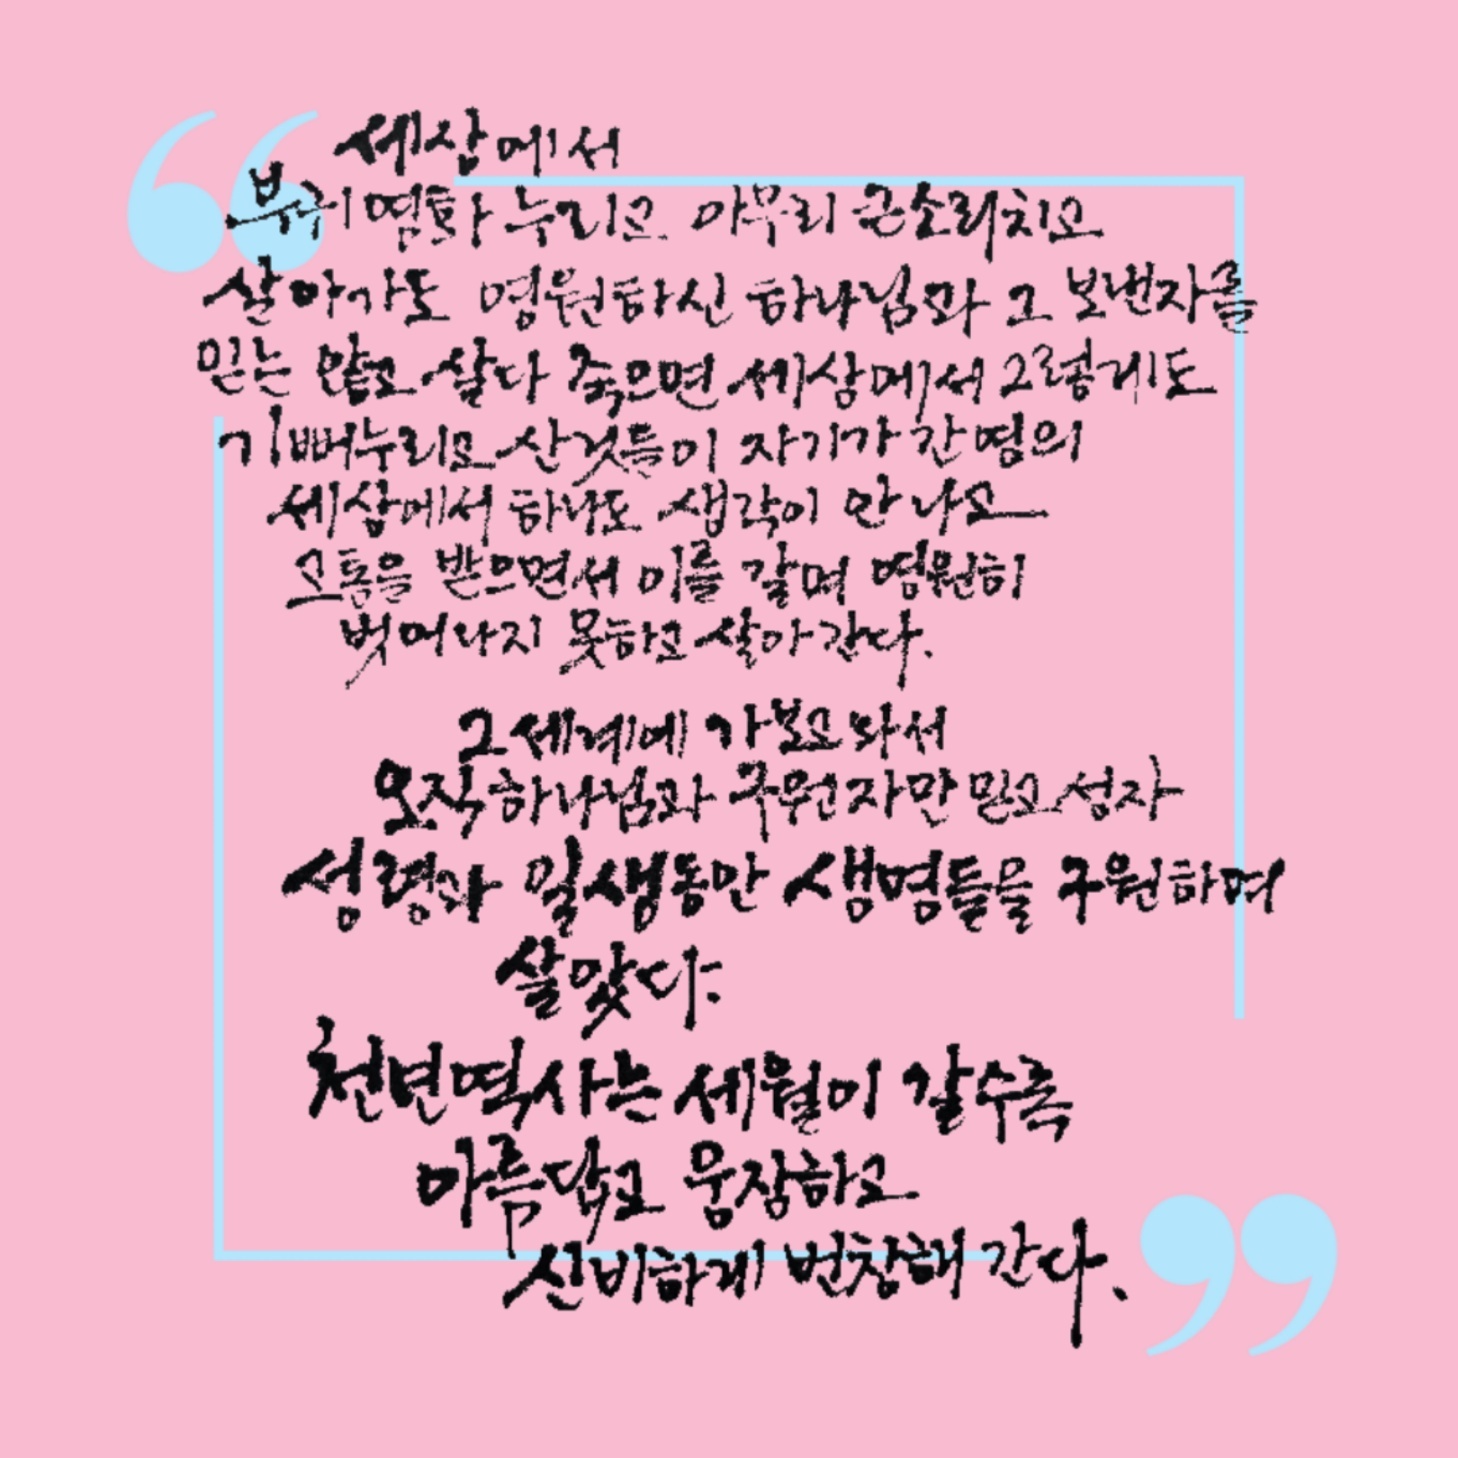 세상에서
부귀영화 누리고 아무리 큰소리치고
살아가도 영원하신 하나님과 그 보낸자를
믿는 않고 살다 죽으면 세상에서 그렇게도
기뻐누리고 산것들이 자기가 간 영의
세상에서 하나도 생각이 안 나고
고통을 받으면서 이를 갈며 영원히
벗어나지 못하고 살아간다.
그 세계에 가보고 와서
오직 하나님과 구원자만 믿고 성자
성령과 일생동안 생명들을 구원하며
살았다.
천년역사는 세월이 갈수록
아름답고 웅장하고
신비하게 번창해 간다.